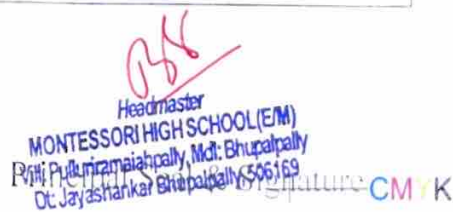 Headmaster
MONTESSORI HIGH SCHOOL(E/M)
Vill: Pulluriramaiahpally, Mdl: Bhupalpally
Dt: Jayashankar Bhupalpally-506169
Principal Seal & Signature CMYK